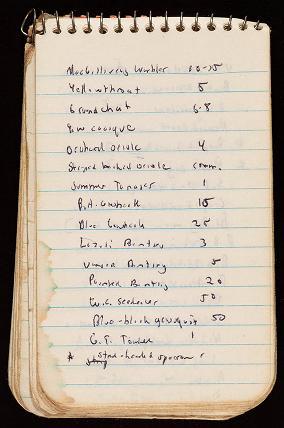 MacGillivray Warbler 20-25
Yellowthroat 5
Groundchat 6-8
Y-w cacique
Orchard Oriole 4
Striped backed Oriole comm.
Summer Tanager 1
R.b. Grosbeak 10
Blue Grosbeak 25
Lazuli Bunting 3
Varied Bunting 5
Painted Bunting 20
W.c. Seedeater 50
Blue-black grassquit 50
G.T. Towhee 1
* stripe-headed sparrow